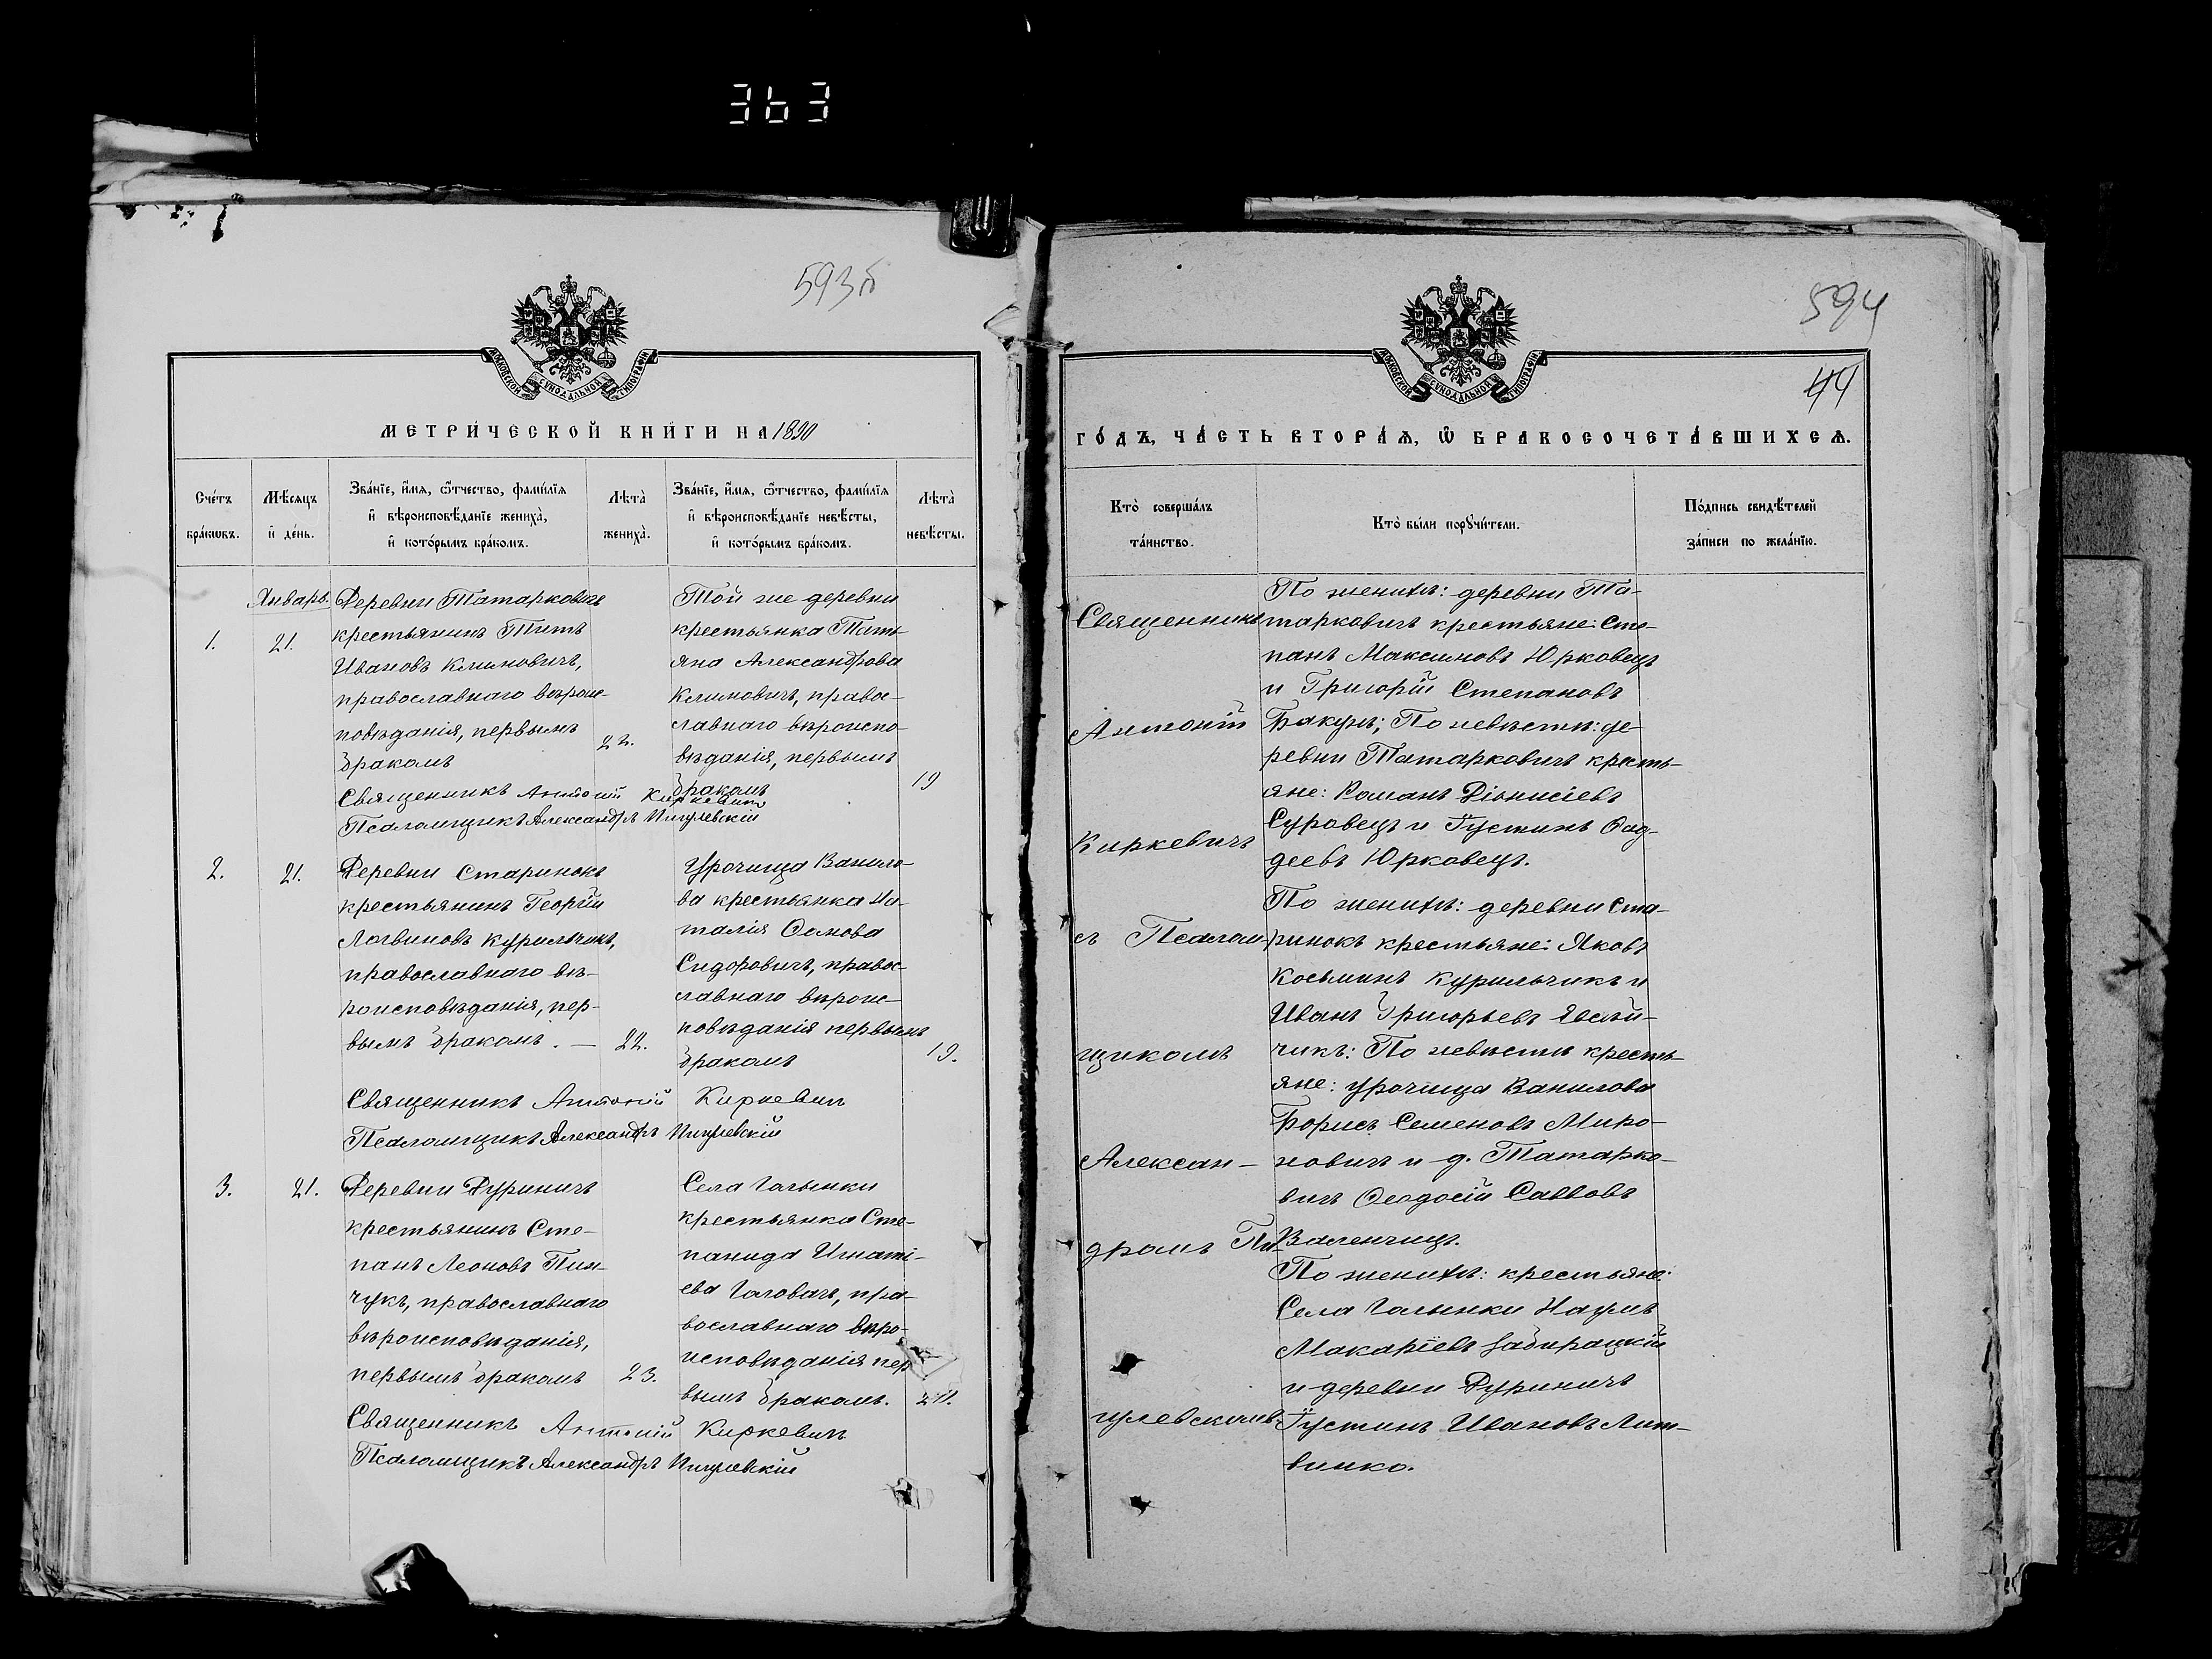 363
593б
МОСКОВСКОЙ СѴНОДАЛЬНОЙ ТИПОГРАФІИ
МЕТРИ́ЧЕСКОЙ КНИ́ГИ НА 1890
Сче́тъ бра́кωвъ.
Мѣ́сѧцъ и҆ де́нь.
Зва́нїе, и҆́мѧ, ѻ҆́тчество, фами́лїѧ
и҆ вѣроисповѣ́данїе жениха̀,
и҆ кото́рымъ бра́комъ.
Лѣта̀ жениха̀.
Зва́нїе, и҆́мѧ, ѻ҆́тчество, фами́лїѧ
и҆ вѣроисповѣ́данїе невѣ́сты,
и҆ кото́рымъ бра́комъ.
Лѣта̀ невѣ́сты.
Январь.
1.
21.
Деревни Татарковичъ
крестьянинъ Титъ
Ивановъ Климовичъ,
православнаго вѣроис-
повѣданія, первымъ
бракомъ
22.
Той же деревни
крестьянка Тать-
яна Александрова
Климовичъ, правос-
лавнаго вѣроиспо-
вѣданія, первымъ
бракомъ
19
Священникъ Антоній Киркевичъ
Псаломщикъ Александръ Пигулевскій
2.
21.
Деревни Старинокъ
крестьянинъ Георгій
Логвиновъ Курильчикъ,
православнаго вѣ-
роисповѣданія, пер-
вымъ бракомъ. —
22.
Урочища Ванило-
ва крестьянка На-
талія Ѳомова
Сидоровичъ, правос-
лавнаго вѣроис-
повѣданія первымъ
бракомъ
19.
Священникъ Антоній Киркевичъ
Псаломщикъ Александръ Пигулевскій
3.
21.
Деревни Дуриничъ
крестьянинъ Сте-
панъ Леоновъ Пин-
чукъ, православнаго
вѣроисповѣданія,
первымъ бракомъ
23.
Села Голынки
крестьянка Сте-
панида Игнаті-
ева Головачъ, пра-
вославнаго вѣро-
исповѣданія пер
вымъ бракомъ.
Священникъ Антоній Киркевичъ
Псаломщикъ Александръ Пигулевскій
594
44
МОСКОВСКОЙ СѴНОДАЛЬНОЙ ТИПОГРАФІИ
ГО́ДЪ, ЧА́СТЬ ВТОРА́Ѧ, Ѽ БРАКОСОЧЕТА́ВШИХСѦ.
Кто̀ соверша́лъ
та́инство.
Кто̀ бы́ли порꙋчи́тели.
По́дпись свидѣ́телей
за́писи по жела́нїю.
Священникъ
Антоній
Киркевичъ
съ Псалом-
щикомъ
Алексан-
дромъ Пи-
гулевскимъ.
По женихѣ: деревни Та-
тарковичъ крестьяне: Сте-
панъ Максимовъ Юрковецъ
и Григорій Степановъ
Бакунъ; По невѣстѣ: де-
ревни Татарковичъ кресть-
яне: Романъ Діонисіевъ
Суровецъ и Іустинъ Ѳад-
деевъ Юрковецъ.
По женихѣ: деревни Ста-
ринокъ крестьяне: Яковъ
Косьминъ Курильчикъ и
Иванъ Григорьевъ
чикъ: По невѣстѣ кресть-
яне: урочища Ванилова
Борисъ Семеновъ Миро-
новичъ и д. Татарко-
вичъ Ѳеодосій Савовъ
Валенчицъ.
По женихѣ: крестьяне:
Села Голынки Наумъ
Макаріевъ Забирацкій
и деревни Дуриничъ
Іустинъ Ивановъ Лит-
винко.